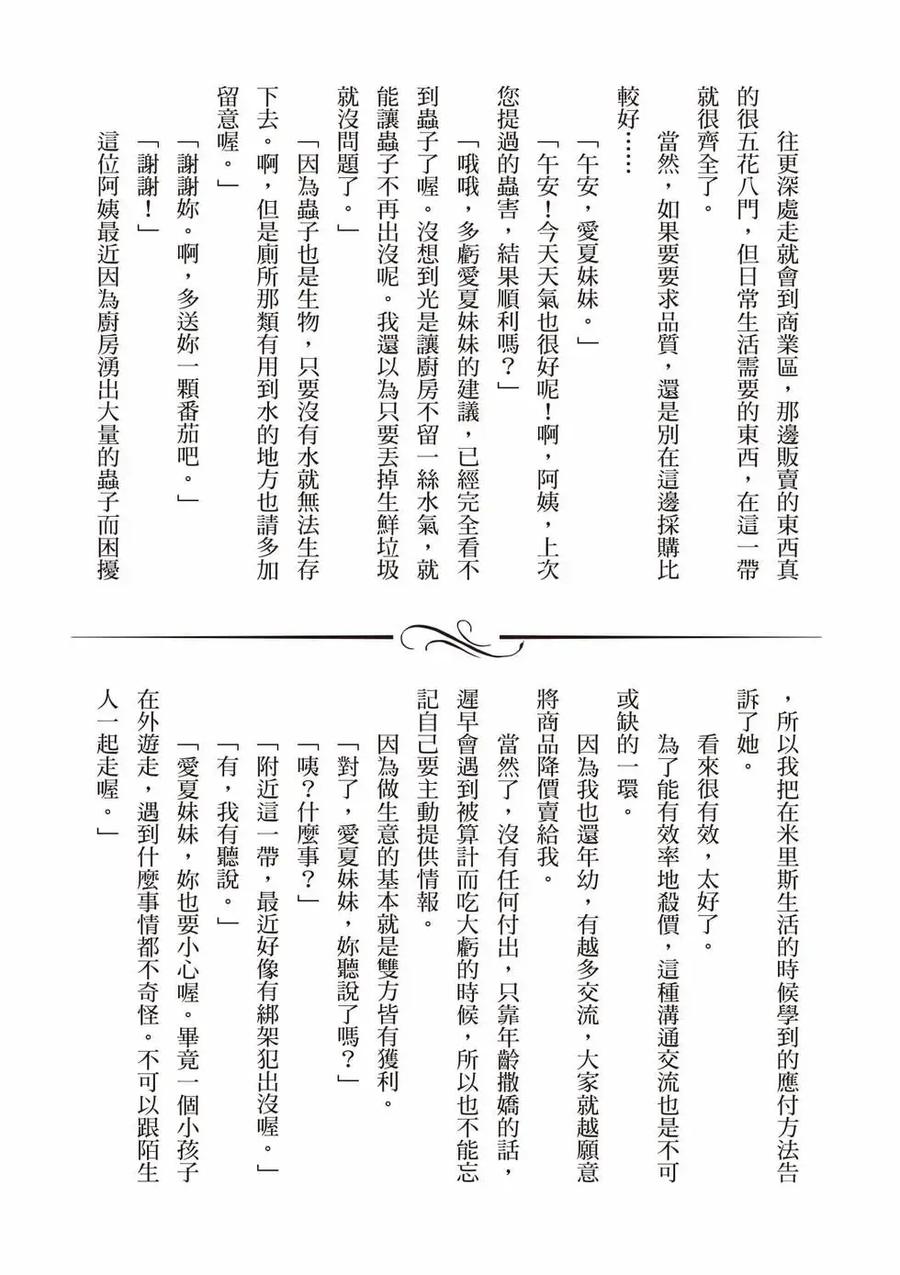 往更深處走就會到商業區，那邊販賣的東西真
的很五花八門，但日常生活需要的東西，在這一帶
就很齊全了。
　當然，如果要要求品質，還是別在這邊採購比
較好……
　「午安，愛夏妹妹。」
　「午安！今天天氣也很好呢！啊，阿姨，上次
您提過的蟲害，結果順利嗎？」
　「哦哦，多虧愛夏妹妹的建議，已經完全看不
到蟲子了喔。沒想到光是讓廚房不留一絲水氣，就
能讓蟲子不再出沒呢。我還以為只要丟掉生鮮垃圾
就沒問題了。」
　「因為蟲子也是生物，只要沒有水就無法生存
下去。啊，但是廁所那類有用到水的地方也請多加
留意喔。」
　「謝謝妳。啊，多送妳一顆番茄吧。」
　「謝謝！」
　這位阿姨最近因為廚房湧出大量的蟲子而困擾
，所以我把在米里斯生活的時候學到的應付方法告
訴了她。
　看來很有效，太好了。
　為了能有效率地殺價，這種溝通交流也是不可
或缺的一環。
　因為我也還年幼，有越多交流，大家就越願意
將商品降價賣給我。
　當然了，沒有任何付出，只靠年齡撒嬌的話，
遲早會遇到被算計而吃大虧的時候，所以也不能忘
記自己要主動提供情報。
　因為做生意的基本就是雙方皆有獲利。
　「對了，愛夏妹妹，妳聽說了嗎？」
　「咦？什麼事？」
　「附近這一帶，最近好像有綁架犯出沒喔。」
　「有，我有聽說。」
　「愛夏妹妹，妳也要小心喔。畢竟一個小孩子
在外遊走，遇到什麼事情都不奇怪。不可以跟陌生
人一起走喔。」